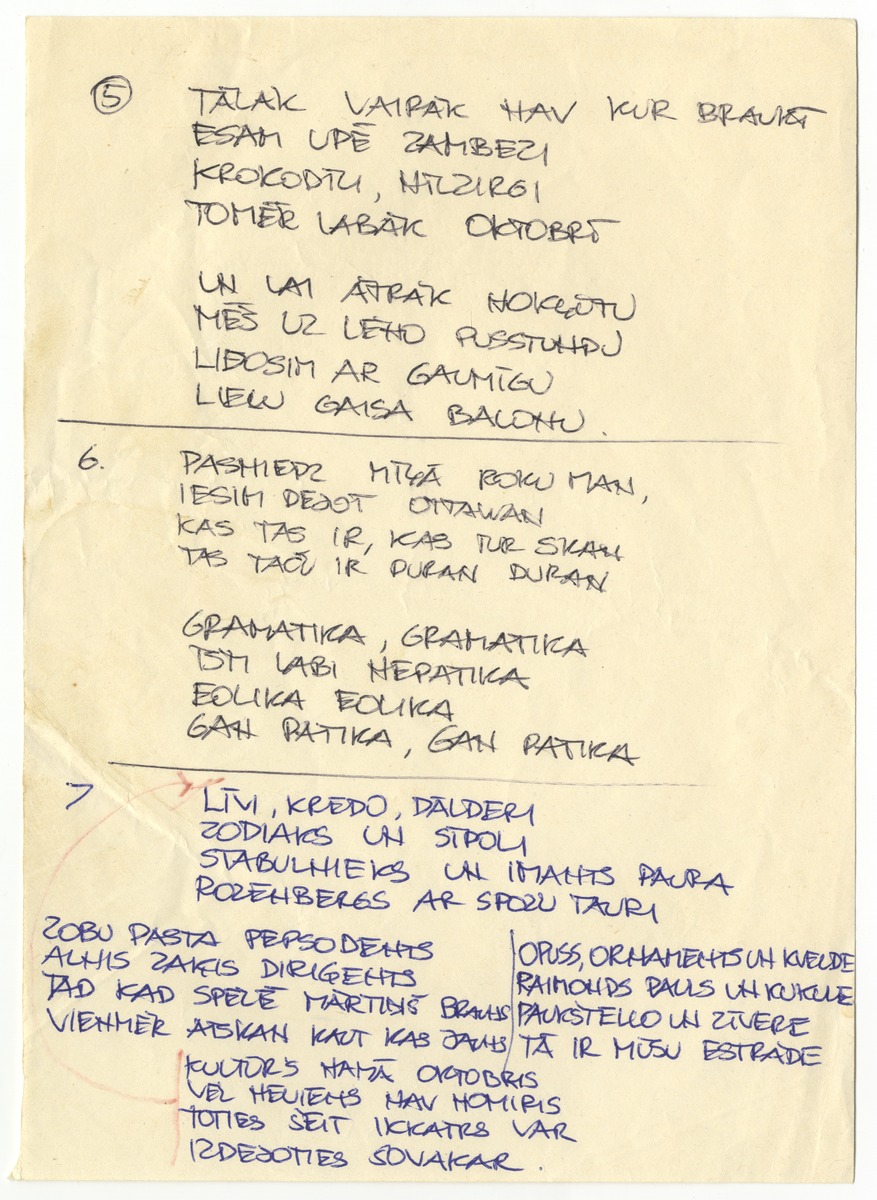 5
TĀLĀK VAIRĀK NAV KUR BRAUKT
ESAM UPĒ ZAMBEZI
KROKODĪLI, NĪLZIRGI
TOMĒR LABĀK OKTOBRĪ
UN LAI ĀTRĀK NOKĻŪTU
MĒS UZ LĒNO PUSSTUNDU
LIDOSIM AR GAUMĪGU
LIELU GAISA BALONU.
6.
PASNIEDZ MĪĻĀ ROKU MAN,
IESIM DEJOT OTTAWAN
KAS TAS IR, KAS TUR SKAN
TAS TAČU IR DURAN DURAN
GRAMATIKA, GRAMATIKA
ĪSTI LABI NEPATIKA
EOLIKA EOLIKA
GAN PATIKA, GAN PATIKA
7
LĪVI, KREDO, DĀLDERI
ZODIAKS UN SĪPOLI
STABULNIEKS UN IMANTS PAURA
ROZENBERGS AR SPOŽU TAURI
ZOBU PASTA PEPSODENTS
ALNIS ZAĶIS DIRIĢENTS
TAD KAD SPĒLĒ MĀRTIŅŠ BRAUNS
VIENMĒR ATSKAN KAUT KAS JAUNS
OPUSS, ORNAMENTS UN KVĒLDE
RAIMONDS PAULS UN KUKULE
PAUKŠTELLO UN ZĪVERE
TĀ IR MŪSU ESTRĀDE
KULTŪRS NAMĀ OKTOBRIS
VĒL NEVIENS NAV NOMIRIS
TOTIES ŠEIT IKKATRS VAR
IZDEJOTIES ŠOVAKAR.